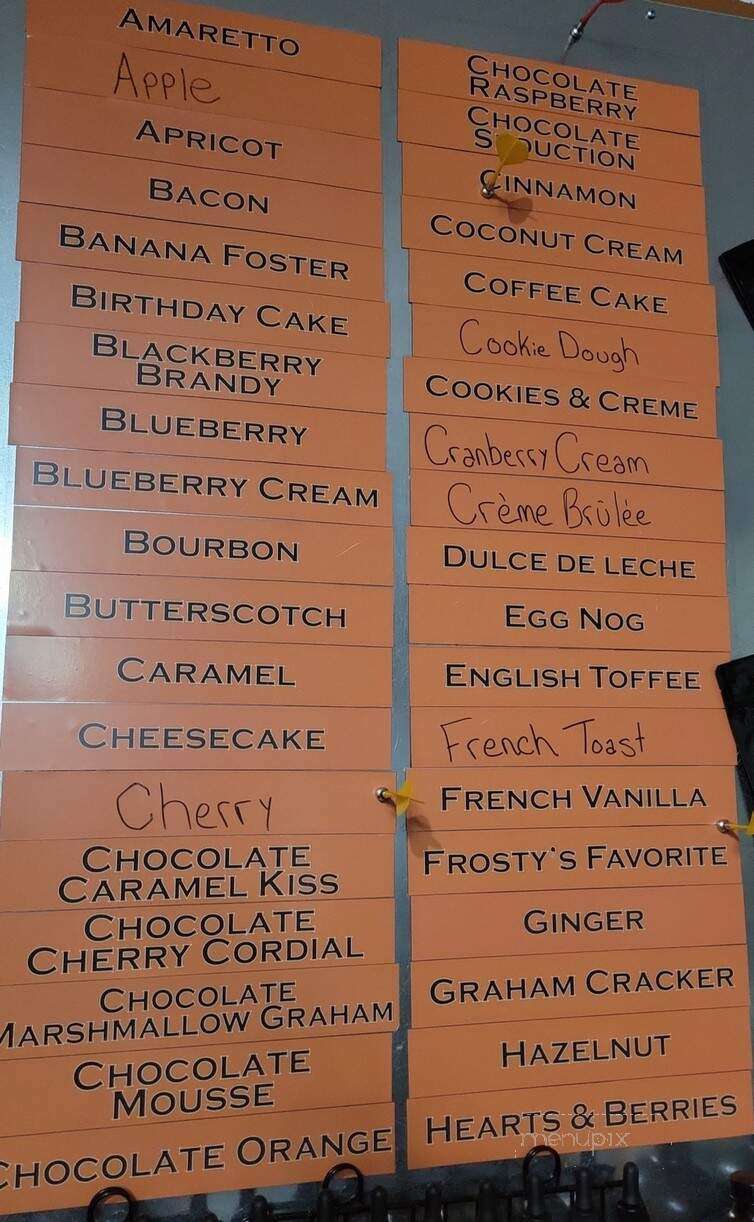 AMARETTO
Apple
APRICOT
BACON
BANANA FOSTER
BIRTHDAY CAKE
BLACKBERRY
BRANDY
BLUEBERRY
BLUEBERRY CREAM
BOURBON
BUTTERSCOTCH
CARAMEL
CHEESECAKE
Cherry
CHOCOLATE
CARAMEL KISS
CHOCOLATE
CHERRY CORDIAL
CHOCOLATE
MARSHMALLOW GRAHAM
CHOCOLATE
MOUSSE
CHOCOLATE ORANGE
CHOCOLATE
RASPBERRY
CHOCOLATE
SEDUCTION
CINNAMON
COCONUT CREAM
COFFEE CAKE
Cookie Dough
COOKIES & CREME
Cranberry Cream
Crème Brûlée
DULCE DE LECHE
EGG NOG
ENGLISH TOFFEE
French Toast
FRENCH VANILLA
FROSTY'S FAVORITE
GINGER
GRAHAM CRACKER
HAZELNUT
HEARTS & BERRIES
menupix